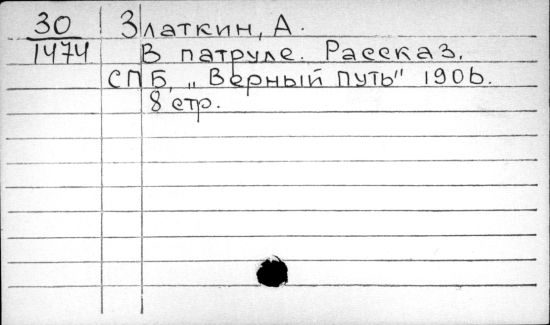 30
1474
Златкин, А.
В патруле. Рассказ.
СПБ, „Верный путь" 1906.
8 стр.